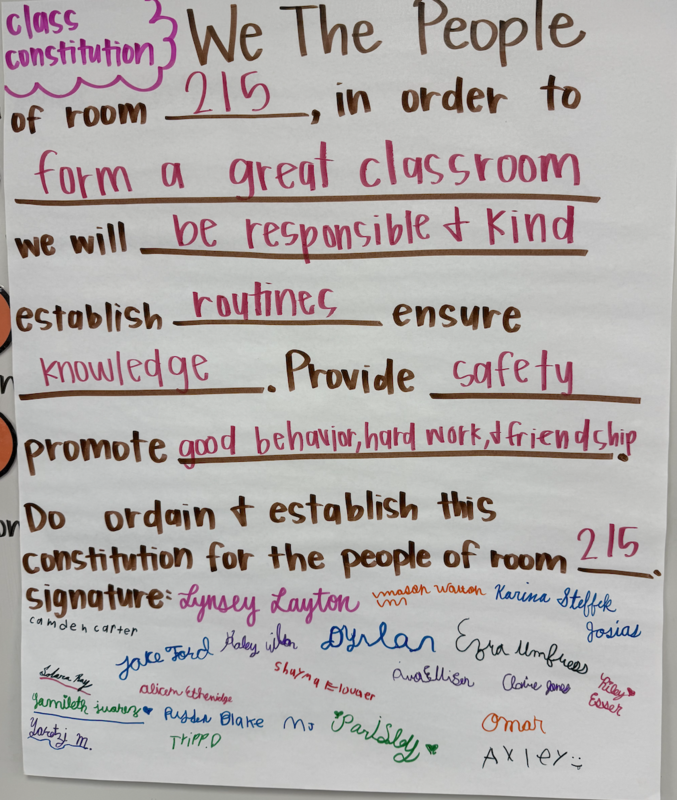 class
constitution
We The People
of room 215, in order to
form a great classroom
we will be responsible & kind
establish routines ensure
knowledge. Provide safety
promote good behavior, hard work, & friendship.
Do ordain & establish this
constitution for the people of room 215.
signature: Lynsey Layton mason Karina Steffek
camden carter Josias
Jake Ford Haley Dyslan Ezra
Shayna Ava Ellison Claire Jones Riley
Esser
Yamileth juarez Alicen Etheridge
Blake MJ Paris Omar
Yaretzi M. Tripp.D Axley